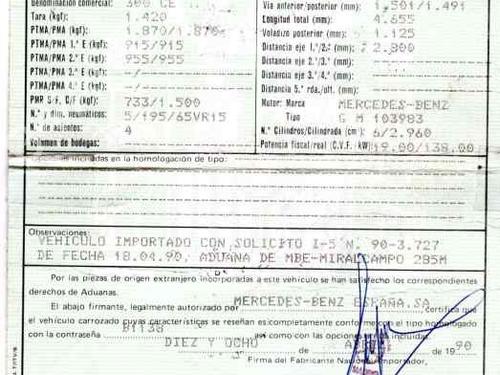 Denominación comercial: 300 CE
Tara (kgf): 1.420
PTMA/PMA (kgf): 1.870/1.870
PTMA/PMA 1.º E (kgf): 915/915
PTMA/PMA 2.º E (kgf): 955/955
PTMA/PMA 3.º E (kgf): -/-
PMR S/F, C/F (kgf): 733/1.500
N.º y dim. neumáticos: 5/195/65VR15
N.º de asientos: 4
Volumen de bodegas: --
Vía anterior/posterior (mm): 1.501/1.491
Longitud total (mm): 4.655
Voladizo posterior (mm): 1.125
Distancia eje 1.º/2.º (mm): 2.800
Distancia eje 2.º/3.º (mm):
Distancia eje 3.º/4.º (mm):
Distancia 5.ª rda./ult. (mm):
Motor: Marca MERCEDES-BENZ
Tipo G M 103983
N.º Cilindros/Cilindrada (cm³) 6/2.960
Potencia fiscal/real (C.V.F./kW) 19,00/138.00
Opciones incluidas en la homologación de tipo:
Observaciones:
VEHICULO IMPORTADO CON SOLICITO I-5 N. 90-3.727
DE FECHA 18.04.90, ADUANA DE MBE-MIRALCAMPO 2B5M
Por las piezas de origen extranjero incorporadas a este vehículo se han satisfecho los correspondientes
derechos de Aduanas.
El abajo firmante, legalmente autorizado por MERCEDES-BENZ ESPAÑA,SA certifica que
el vehículo carrozado cuyas características se reseñan es completamente conforme con el tipo homologado
con la contraseña B1138 así como con las opciones incluidas.
DIEZ Y OCHO de 1990
Firma del Fabricante Nacional/Importador,